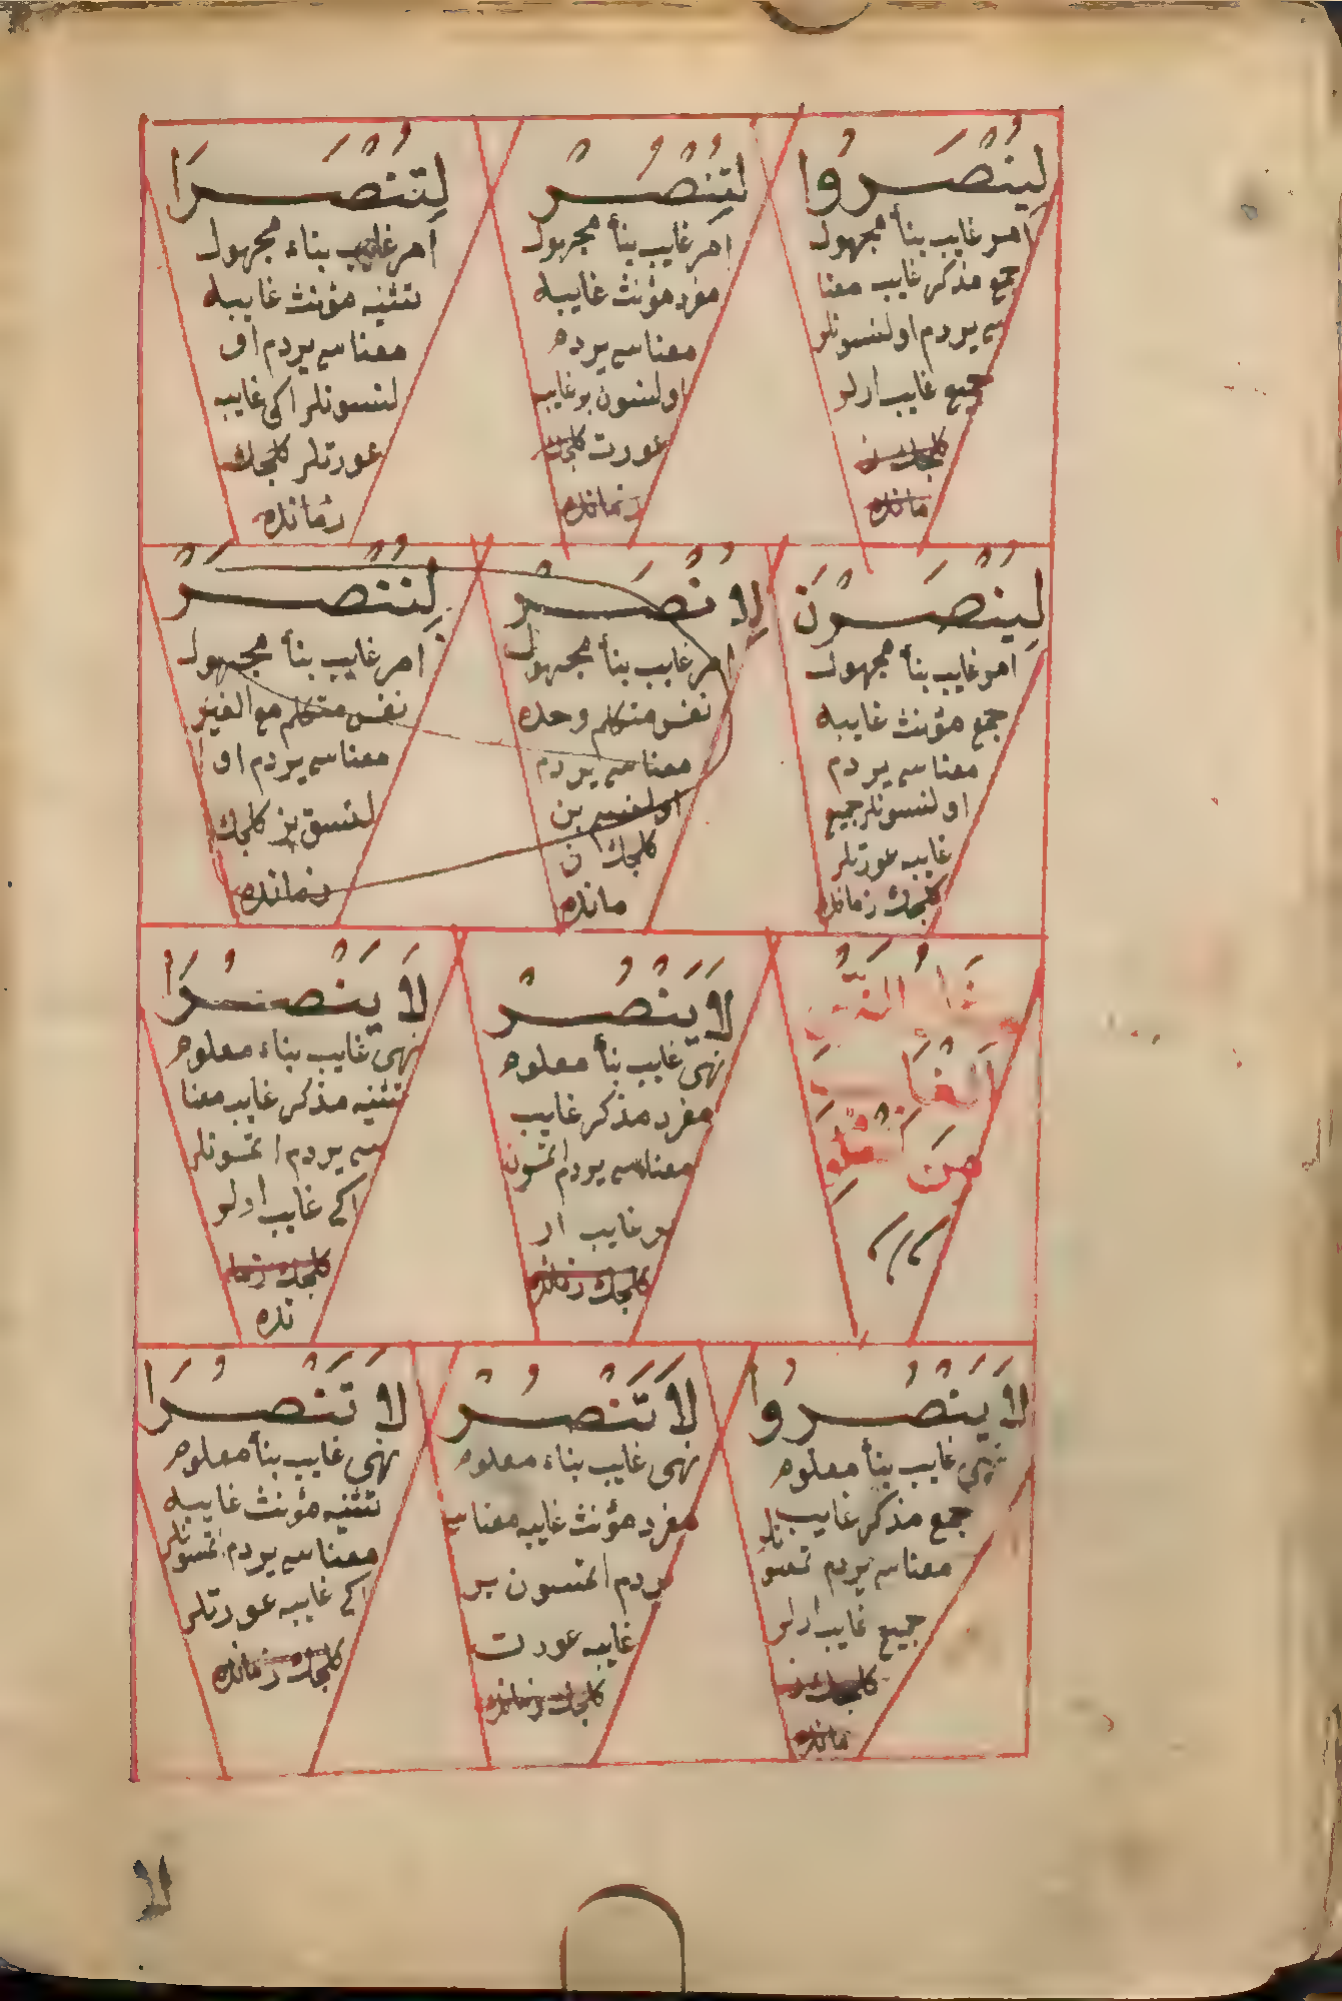 لِيُنْصَرُوا
امر غايب بنأ مجهول
جمع مذكر غايب معنا
سى يردم اولنسونلر
جميع غايب ارلر
كلجك ز
مانده
لِتُنْصَرْ
امر غايب بنأ مجهول
مفرد مؤنث غايبه
معناسى يردم
اولنسون بر غايب
عورت كلجك
زمانده
لِتُنْصَرَا
امر غايب بناء مجهول
تثنيه مؤنث غايبه
معناسى يردم او
لنسونلر اكى غايب
عورتلر كلجك
زمانده
لِيُنْصَرْنَ
امر غايب بنأ مجهول
جمع مؤنث غايبه
معناسى يردم
اولنسونلر جميع
غايبه عورتلر
كلجك زمانده
لِاُنْصَرْ
امر غايب بنأ مجهول
نفس متكلم وحده
معناسى يردم
اولنسم بن
كلجك ز
مانده
لِنُنْصَرْ
امر غايب بنأ مجهول
نفس متكلم مع الغير
معناسى يردم او
لنسق بز كلجك
زمانده
من
لَا يَنْصُرْ
نهى غايب بنأ معلوم
مفرد مذكر غايب
معناسى يردم اتمسون
بر غايب ار
كلجك زمانده
لَا يَنْصُرَا
نهى غايب بناء معلوم
تثنيه مذكر غايب معنا
سى يردم اتمسونلر
اكى غايب اولر
كلجك زما
نده
لَا يَنْصُرُوا
نهى غايب بنأ معلوم
جمع مذكر غايب
معناسى يردم تمسونلر
جميع غايب ارلر
كلجك ز
مانده
لَا تَنْصُرْ
نهى غايب بناء معلوم
مفرد مؤنث غايبه معناسى
يردم اتمسون بر
غايبه عورت
كلجك زمانده
لَا تَنْصُرَا
نهى غايب بنأ معلوم
تثنيه مؤنث غايبه
معناسى يردم اتمسونلر
اكى غايبه عورتلر
كلجك زمانده
لا